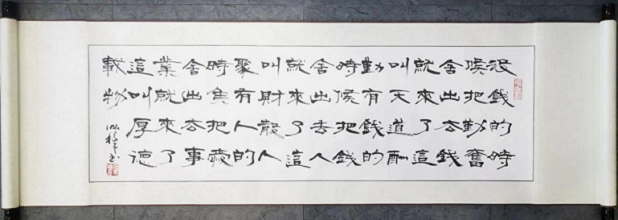 沒錢的時
候把勤奮
舍出去錢
就來了這
叫天道酬
勤有錢的
時候把錢
舍出去人
就來了這
叫財散人
聚有人的
時候把愛
舍出去事
業就來了
這叫厚德
載物